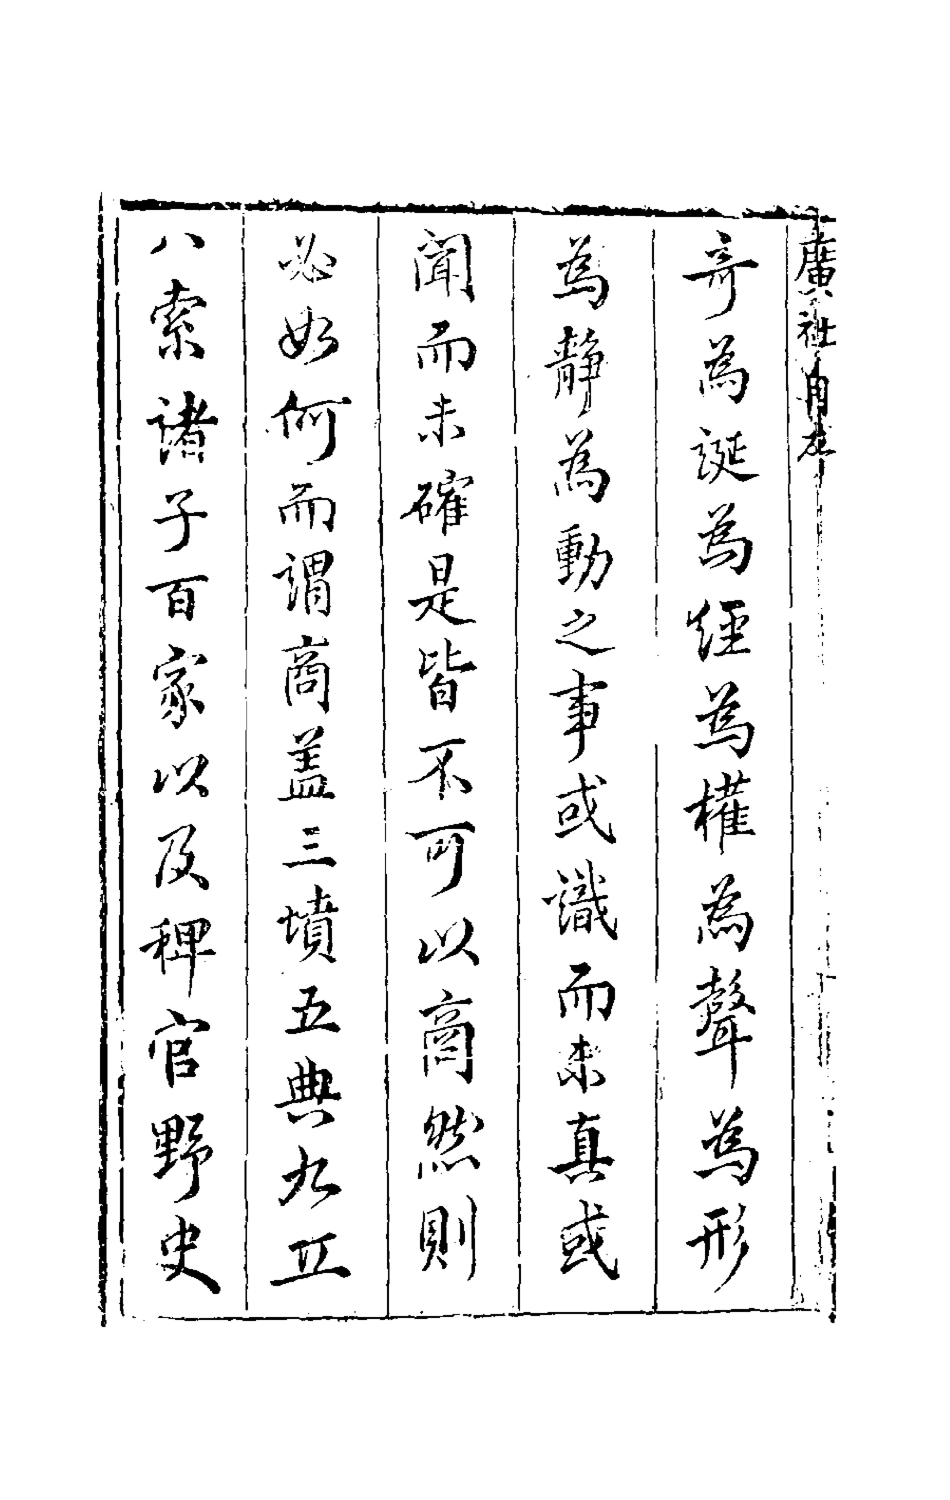 廣社自
奇為誕為經為權為聲為形
為靜為動之事或識而未真或
聞而未確是皆不可以商然則
必如何而謂商盖三墳五典九丘
八索諸子百家以及稗官野史